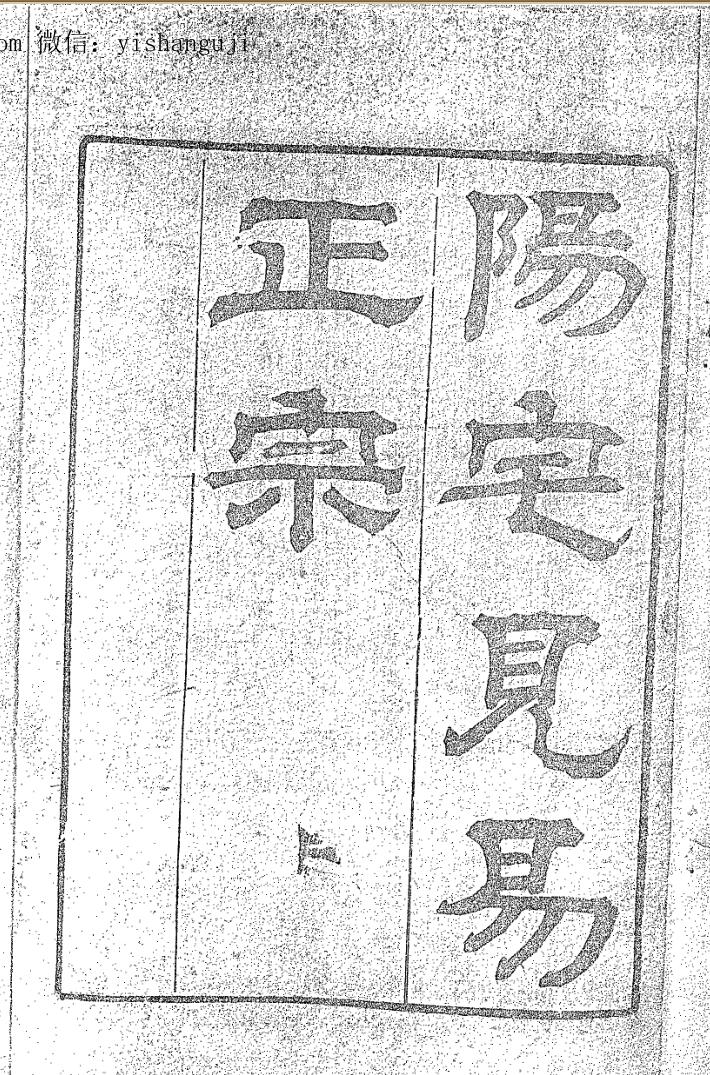 om 微信：yishanguji
陽宅見易
正宗